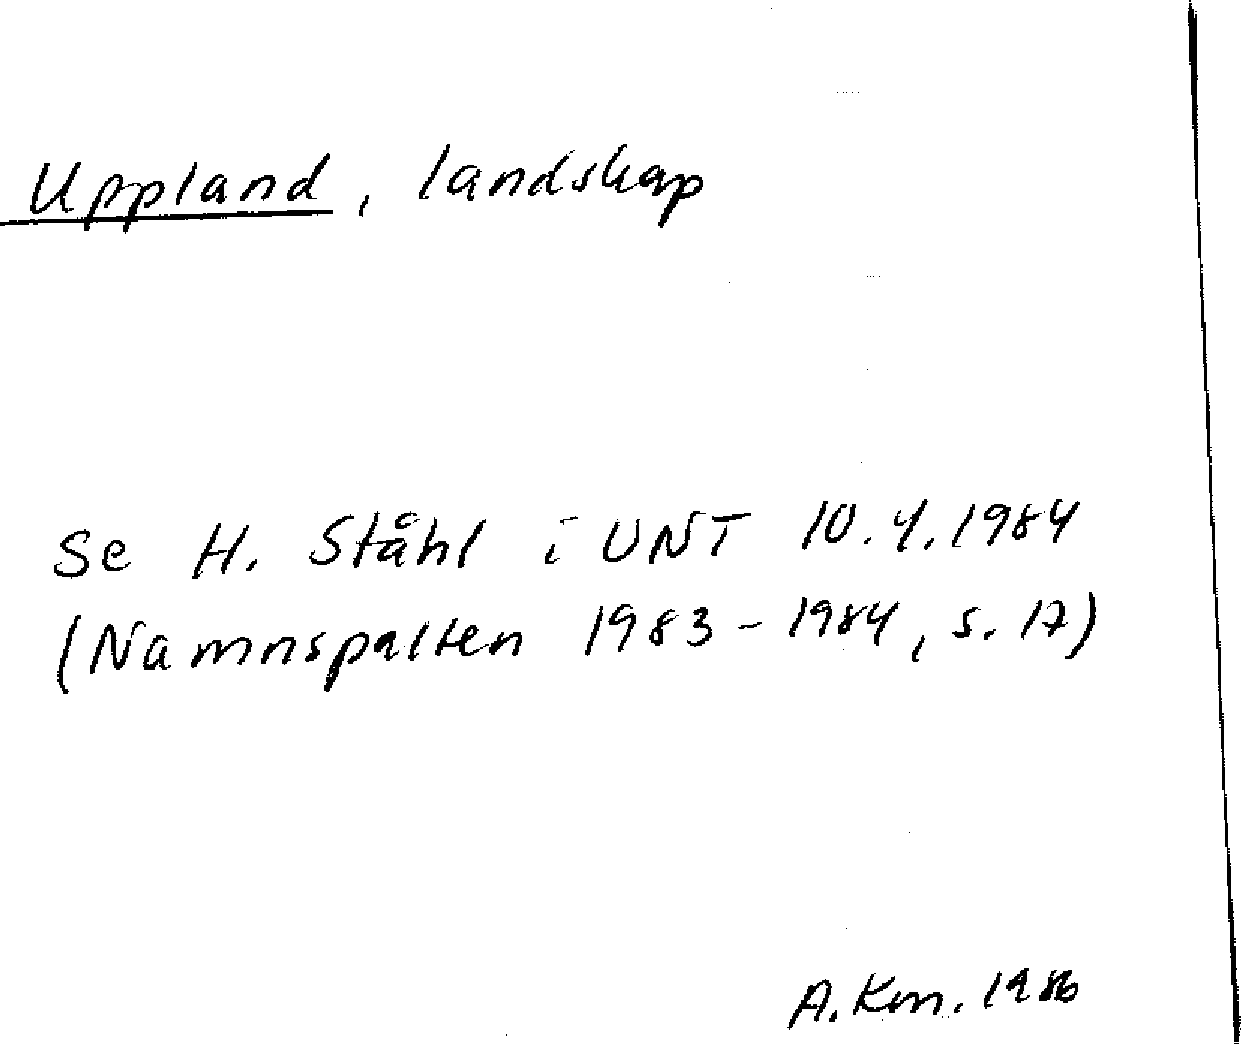 Uppland, landskap
Se H. Ståhl i UNT 10.4.1984
(Namnspalten 1983-1984, s. 17)
A.Km. 1986